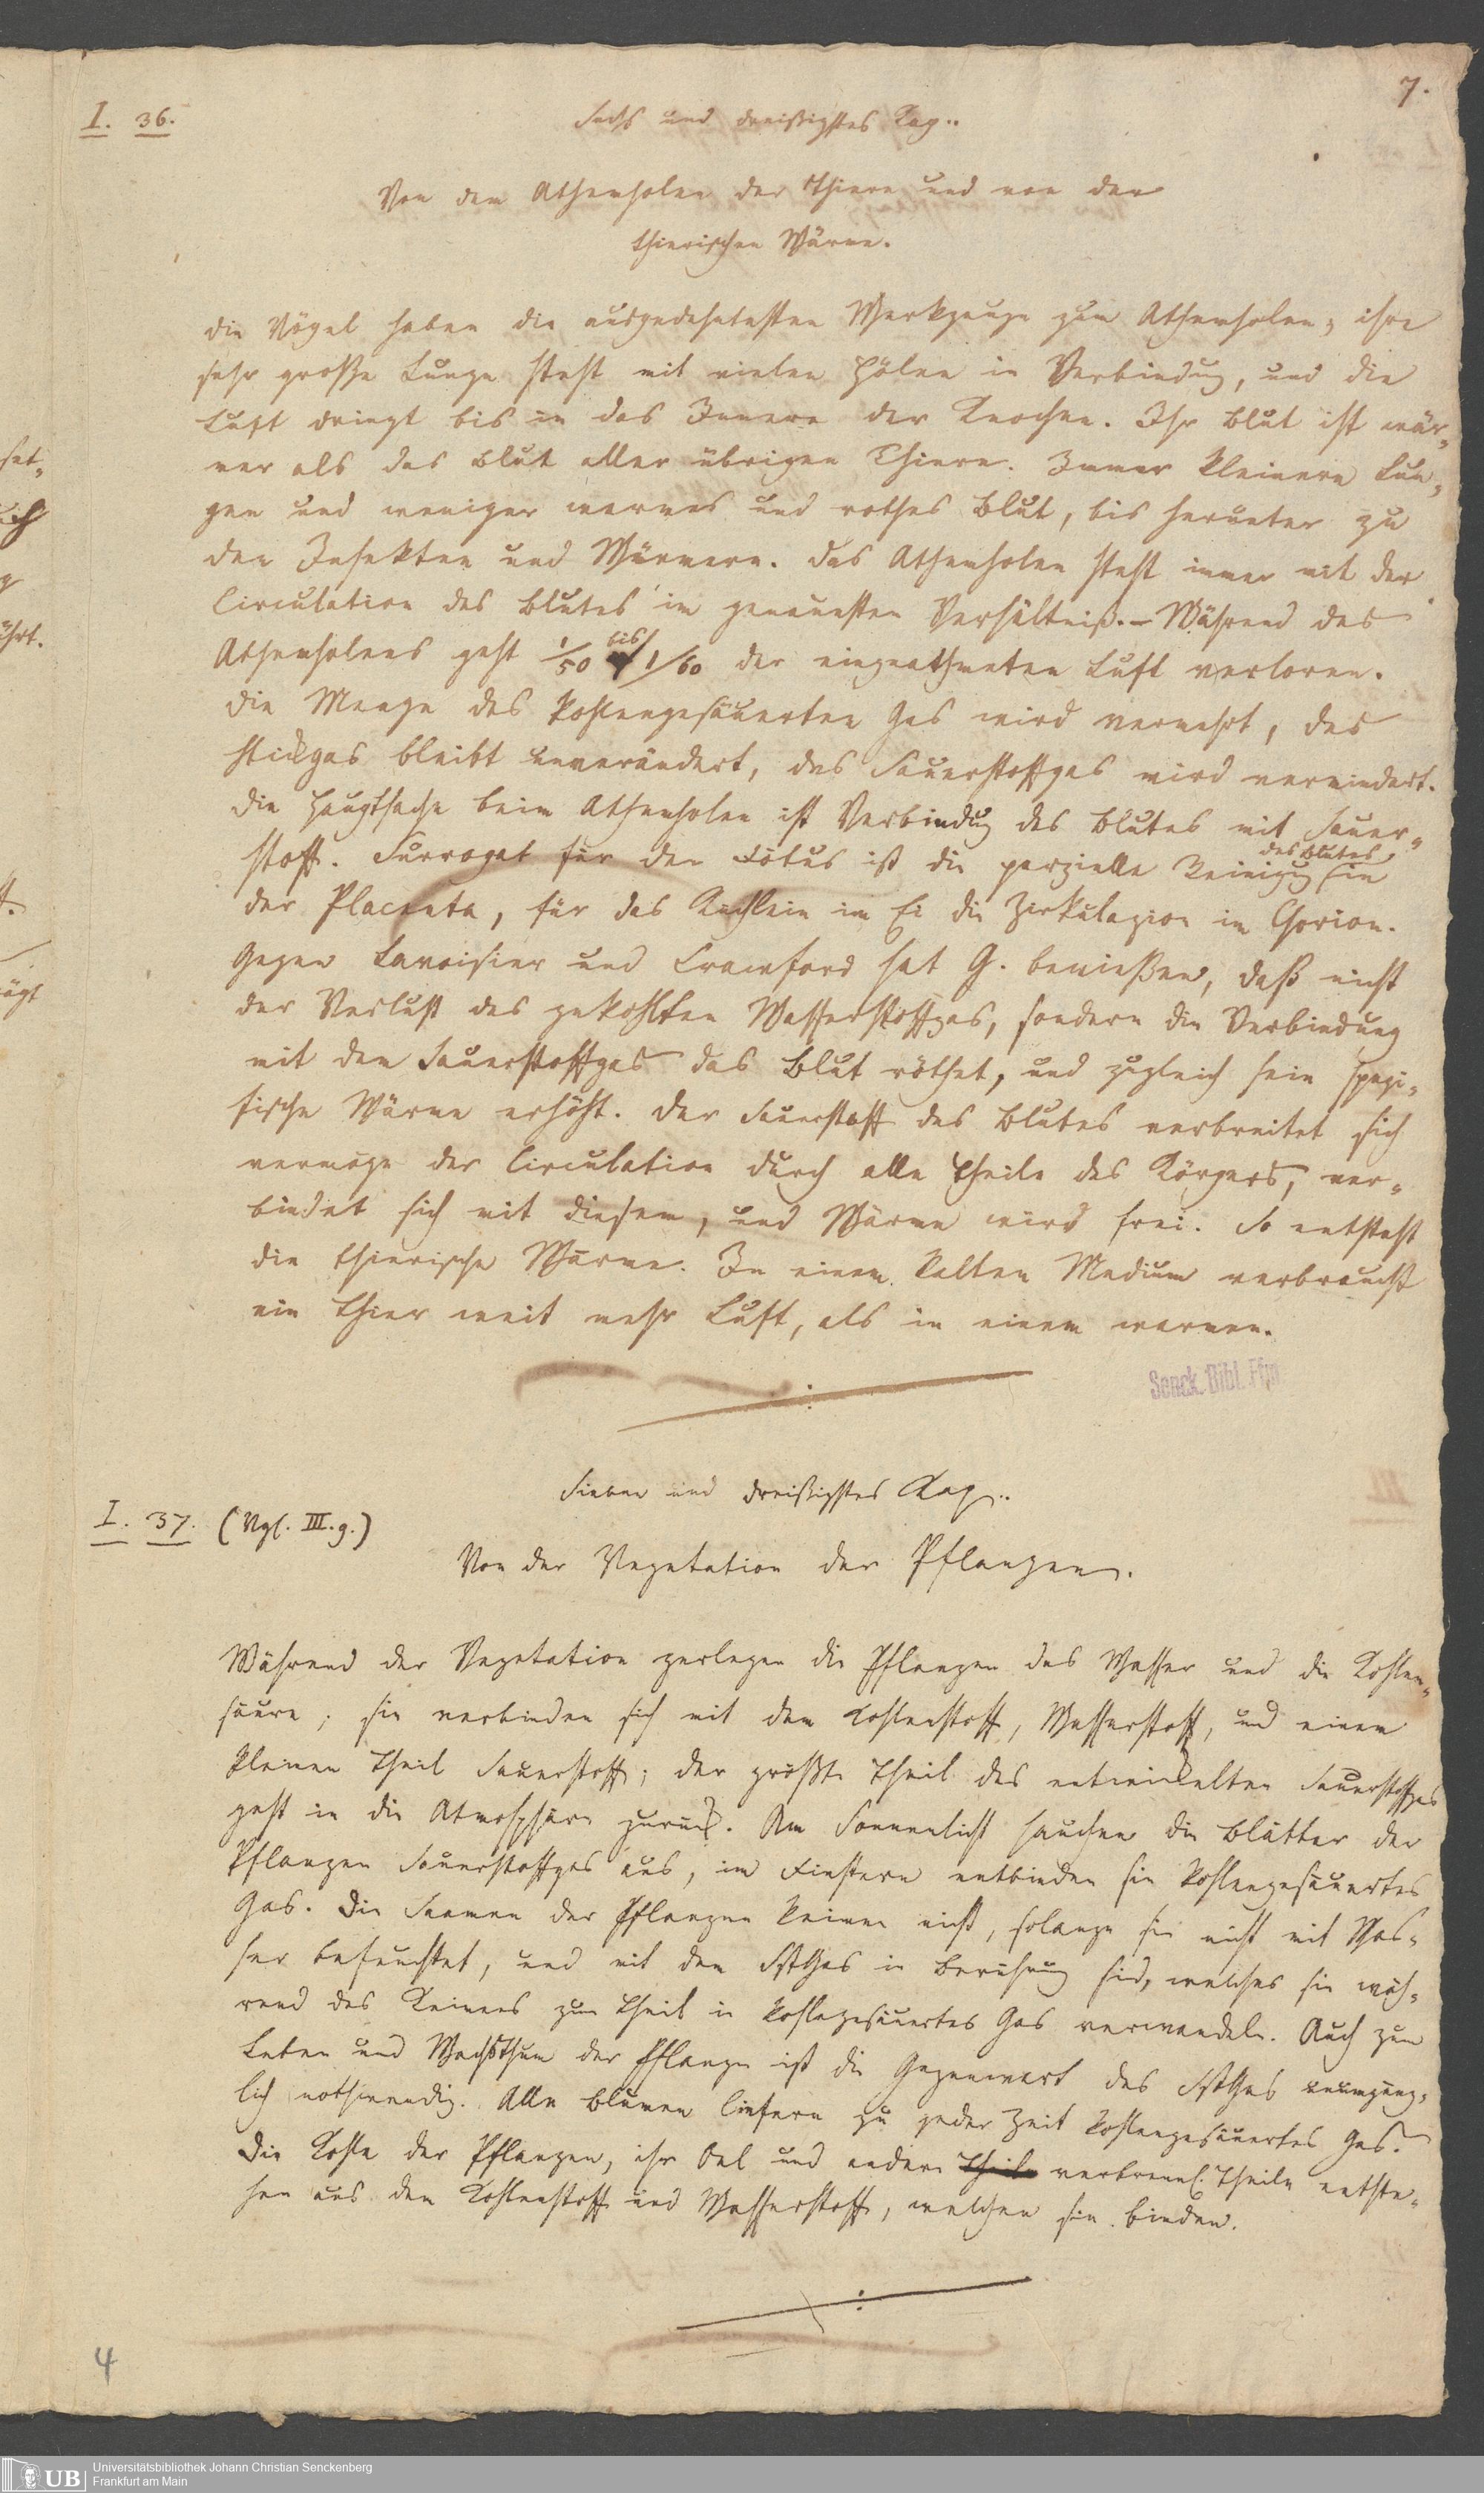 7.
I. 36.
Sechs und dreißigstes Kap..
Von dem Athemholen der Thiere und von der
thierischen Wärme.
Die Vögel haben die ausgedehntesten Werkzeuge zum Athemholen; ihre
sehr große Lunge steht mit vielen Hölen in Verbindung, und die
Luft dringt bis in das Innere der Knochen. Ihr Blut ist wär-
mer als das Blut aller übrigen Thiere. Immer kleinere Lun-
gen und weniger warmes und rothes Blut, bis herunter zu
den Insekten und Würmern. Das Athemholen steht immer mit der
Circulation des Blutes im genauesten Verhältniß. – Während des
Athemholens geht 1/50 bis 1/60 der eingeathmeten Luft verloren.
Die Menge des kohlengesäuerten Gas wird vermehrt, das
Stickgas bleibt unverändert, das Sauerstoffgas wird vermindert.
Die Hauptsache beim Athemholen ist Verbindung des Blutes mit Sauer-
stoff. Surrogat für den Fötus ist die parzielle Reinigung des Blutes in
der Placenta, für das Küchlein im Ei die Zirkulazion im Chorion.
Gegen Lavoisier und Crawford hat G. bewießen, daß nicht
der Verlust des gekohlten Wasserstoffgas, sondern die Verbindung
mit dem Sauerstoffgas das Blut röthet, und zugleich sein spezi-
fische Wärme erhöht. Der Sauerstoff des Blutes verbreitet sich
vermöge der Circulation durch alle Theile des Körpers, ver-
bindet sich mit diesem, und Wärme wird frei. So entsteht
die thierische Wärme. In einem kalten Medium verbraucht
ein Thier weit mehr Luft, als in einem warmen.
Senck. Bibl. Ffm
Sieben und dreißigstes Kap..
I. 37. (Vgl. III. g.)
Von der Vegetation der Pflanzen.
Während der Vegetation zerlegen die Pflanzen das Wasser und die Kohlen-
säure; sie verbinden sich mit dem Kohlenstoff, Wasserstoff, und einem
kleinen Theil Sauerstoff; der größte Theil des entwickelten Sauerstoffgas
geht in die Atmosphäre zurück. Am Sonnenlicht hauchen die Blätter der
Pflanzen Sauerstoffgas aus, im Finstern entbinden sie kohlengesäuertes
Gas. Die Saamen der Pflanzen keimen nicht, solange sie nicht mit Was-
ser befeuchtet, und mit dem StGas in Berührung sind, welches sie wäh-
rend des Keimens zum Theil in kohlegesäuertes Gas verwandeln. Auch zum
Leben und Wachsthum der Pflanzen ist die Gegenwart des StGas unumgäng-
lich nothwendig. Alle Blumen liefern zu jeder Zeit kohlengesäuertes Gas.
Die Kohle der Pflanzen, ihr Oel und andere Theile verbrennl. Theile entste-
hen aus dem Kohlenstoff und Wasserstoff, welchen sie binden.
4
UB
Universitätsbibliothek Johann Christian Senckenberg
Frankfurt am Main